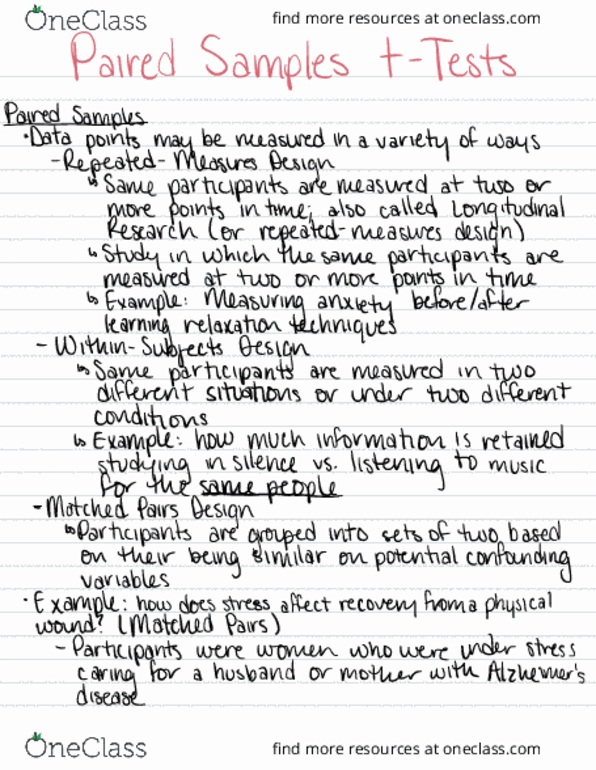 OneClass
find more resources at oneclass.com
Paired Samples t-Tests
Paired Samples
• Data points may be measured in a variety of ways
- Repeated-Measures Design
↳ Same participants are measured at two or
more points in time; also called Longitudinal
Research (or repeated-measures design)
↳ Study in which the same participants are
measured at two or more points in time
↳ Example: Measuring anxiety before/after
learning relaxation techniques
- Within-Subjects Design
↳ Same participants are measured in two
different situations or under two different
conditions
↳ Example: how much information is retained
studying in silence vs. listening to music
for the same people
- Matched Pairs Design
↳ Participants are grouped into sets of two based
on their being similar on potential confounding
variables
• Example: how does stress affect recovery from a physical
wound? (Matched Pairs)
- Participants were women who were under stress
caring for a husband or mother with Alzheimer's
disease
OneClass
find more resources at oneclass.com